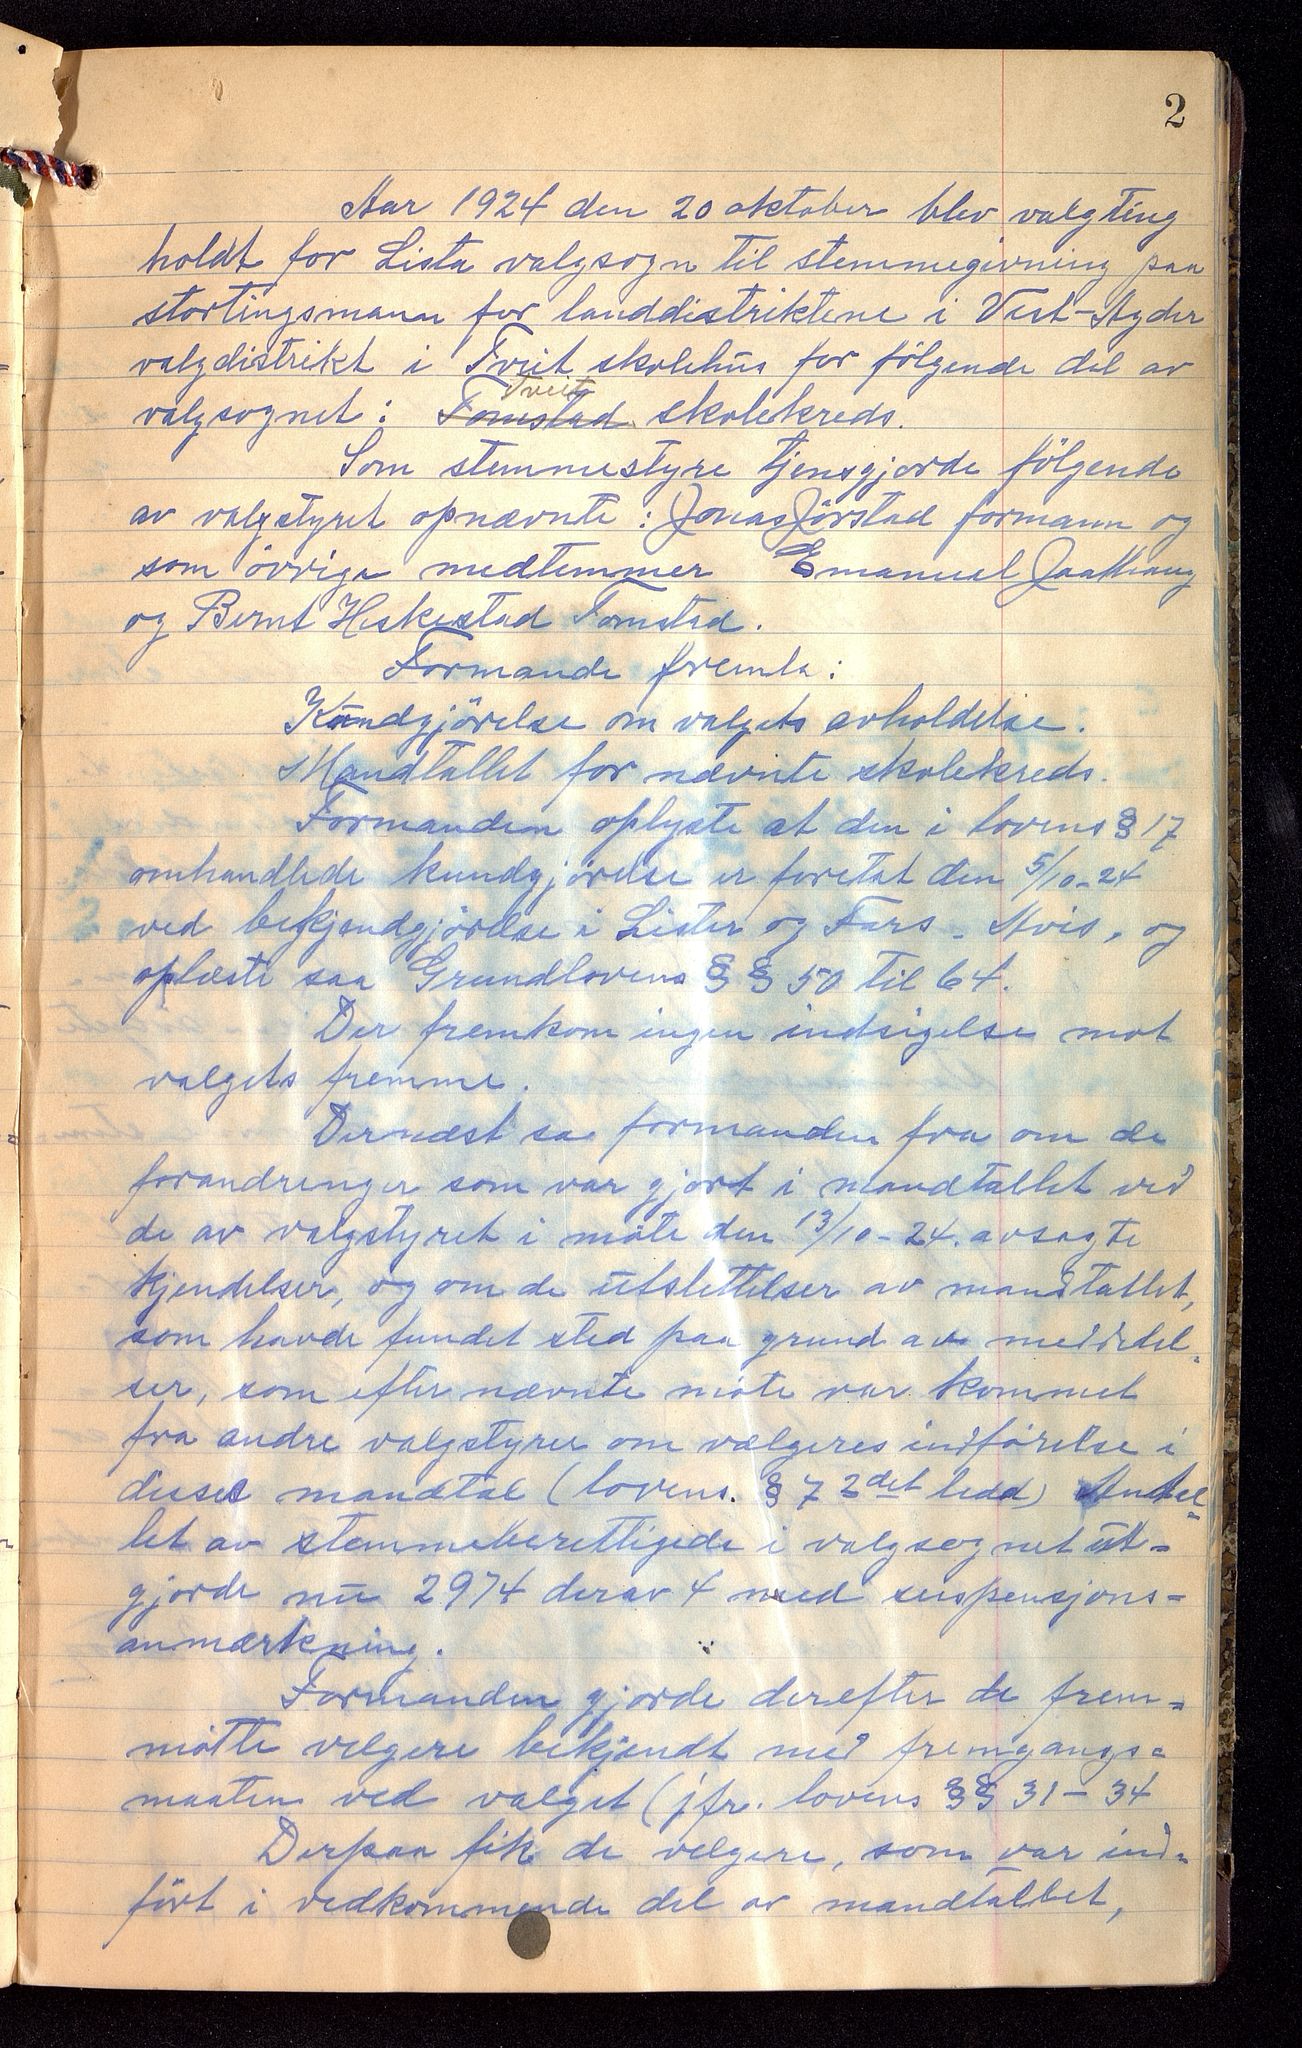 2
Aar 1924 den 20 oktober blev valgting
holdt for Lista valgsogn til stemmegivning paa
stortingsmann for landdistriktene i Vest-Agder
valgdistrikt i Tveit skolehus for følgende del av
Tveit
valgsognet: Tomstad skolekreds.
Som stemmestyre tjensgjorde følgende
av valgstyret opnævnte: Jonas Jørstad formann og
som övrige medlemmer Emanuel
og Bernt Heskestad Tomstad.
Formande fremla:
Kundgjörelse om valgets avholdelse.
Mandtallet for nævnte skolekreds.
Formanden oplyste at den i lovens § 17
omhandlede kundgjörelse er foretat den 5/10-24
ved bekjendgjörelse i Lister og Fars. Avis, og
oplæste saa Grundlovens § § 50 til 64.
Der fremkom ingen indsigelse mot
valgets fremme.
Dernæst sa formanden fra om de
forandringer som var gjort i mandtallet ved
de av valgstyret i möte den 13/10-24. avsagte
kjendelser, og om de utslettelser av mandtallet,
som havde fundet sted paa grund av meddel-
ser, som efter nævnte möte var kommet
fra andre valgstyrer om vælgeres indförelse i
disses mandtal (lovens. § 7 2det ledd) Antal-
let av stemmeberettigede i valgsognet ut-
gjorde nu 2974 derav 4 med suspensjons-
anmærkning.
Formanden gjorde derefter de frem-
mötte velgere bekjendt med fremgangs-
maaten ved valget (jfr. lovens §§ 31-34
Derpaa fik de velgere, som var ind-
fört i vedkommende del av mandtallet,